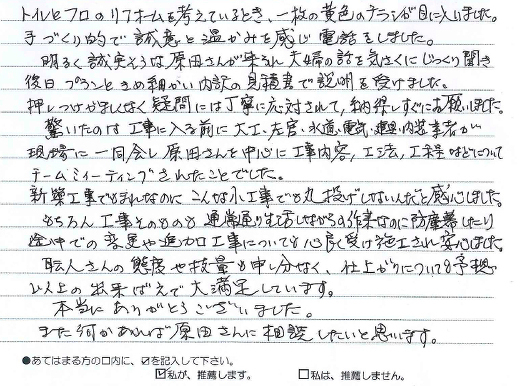 トイレとフロのリフォームを考えているとき、一枚の黄色のチラシが目に入りました。
手づくり的で誠意と温かみを感じ電話をしました。
明るく誠実そうな原田さんが来られ夫婦の話を気さくにじっくり聞き
後日プランときめ細かい内訳の見積書で説明を受けました。
押しつけがましくなく疑問には丁寧に応対されて、納得しすぐにお願いしました。
驚いたのは工事に入る前に大工、左官、水道、電気、建具、内装業者が
現場に一同会し原田さんを中心に工事内容、工法、工程などについて
チームミーティングされたことでした。
新築工事でもまれなのにこんな小工事でも丸投げしないんだと感心しました。
もちろん工事そのものも通常通り生活しながらの作業なのに防塵幕したり
途中での変更や追加工事についても心良く受け施工され安心しました。
職人さんの態度や技量も申し分なく、仕上がりについても予想
以上の出来ばえで大満足しています。
本当にありがとうございました。
また何かあれば原田さんに相談したいと思います。
●あてはまる方の口内に、☑を記入して下さい。
☑私が、推薦します。 □私は、推薦しません。